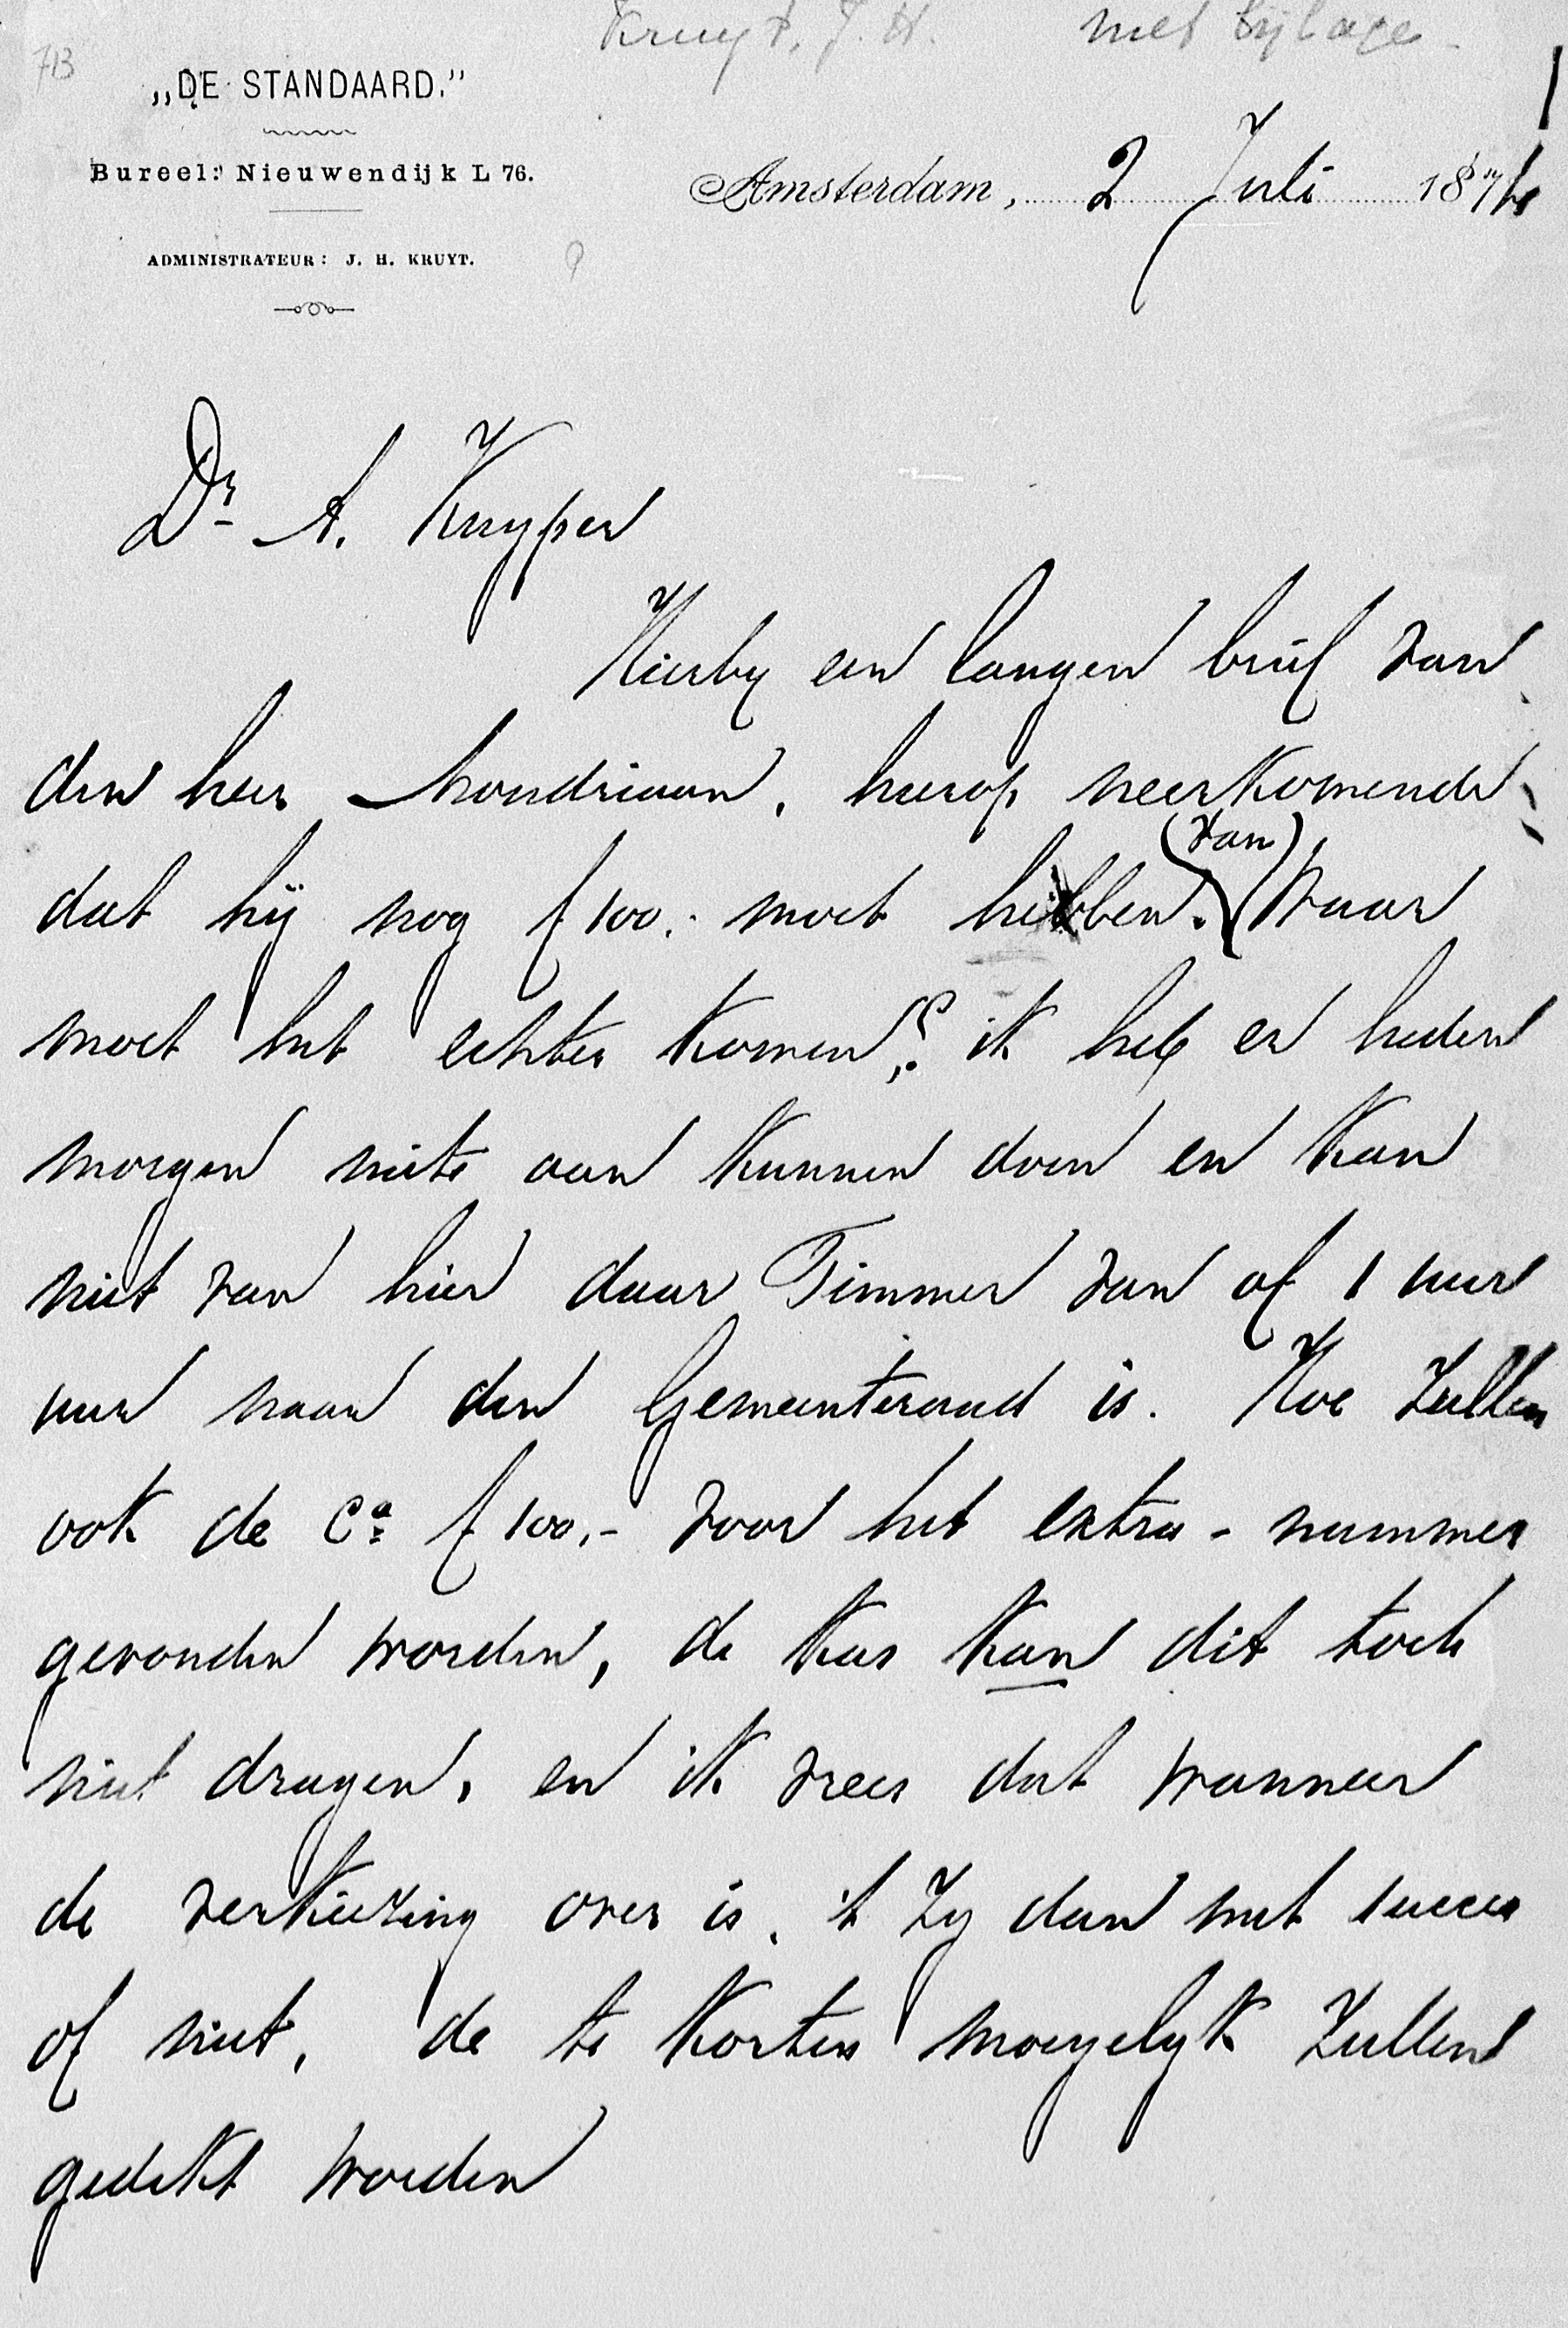 Kruyt, J. H. met bijlage
713
„DE STANDAARD."
Bureel: Nieuwendijk L 76.
ADMINISTRATEUR: J. H. KRUYT.
Amsterdam, 2 Juli 187
Dr A. Kuyper
Hierby een langen brief van
den heer Mondriaan, hierop neerkomende
(van)
dat hij nog f 100.- moet hebben. Waar
moet het echter komen,? ik heb er heden
morgen niets aan kunnen doen en kan
niet van hier daar Timmer van af 1 uur
uur naar den Gemeenteraad is. Hoe zullen
ook de Ca f 100,- voor het extra-nummer
gevonden worden, de kas kan dit toch
niet dragen, en ik vrees dat wanneer
de verkiezing over is, 't zy dan met succes
of niet, de te korten moeyelyk zullen
gedekt worden